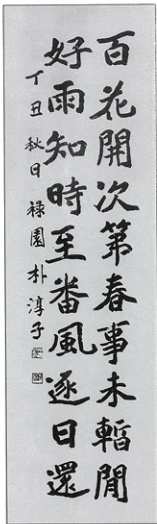 百花開次第春事未暫閒
好雨知時至番風逐日還
丁丑秋日 祿園 朴淳子